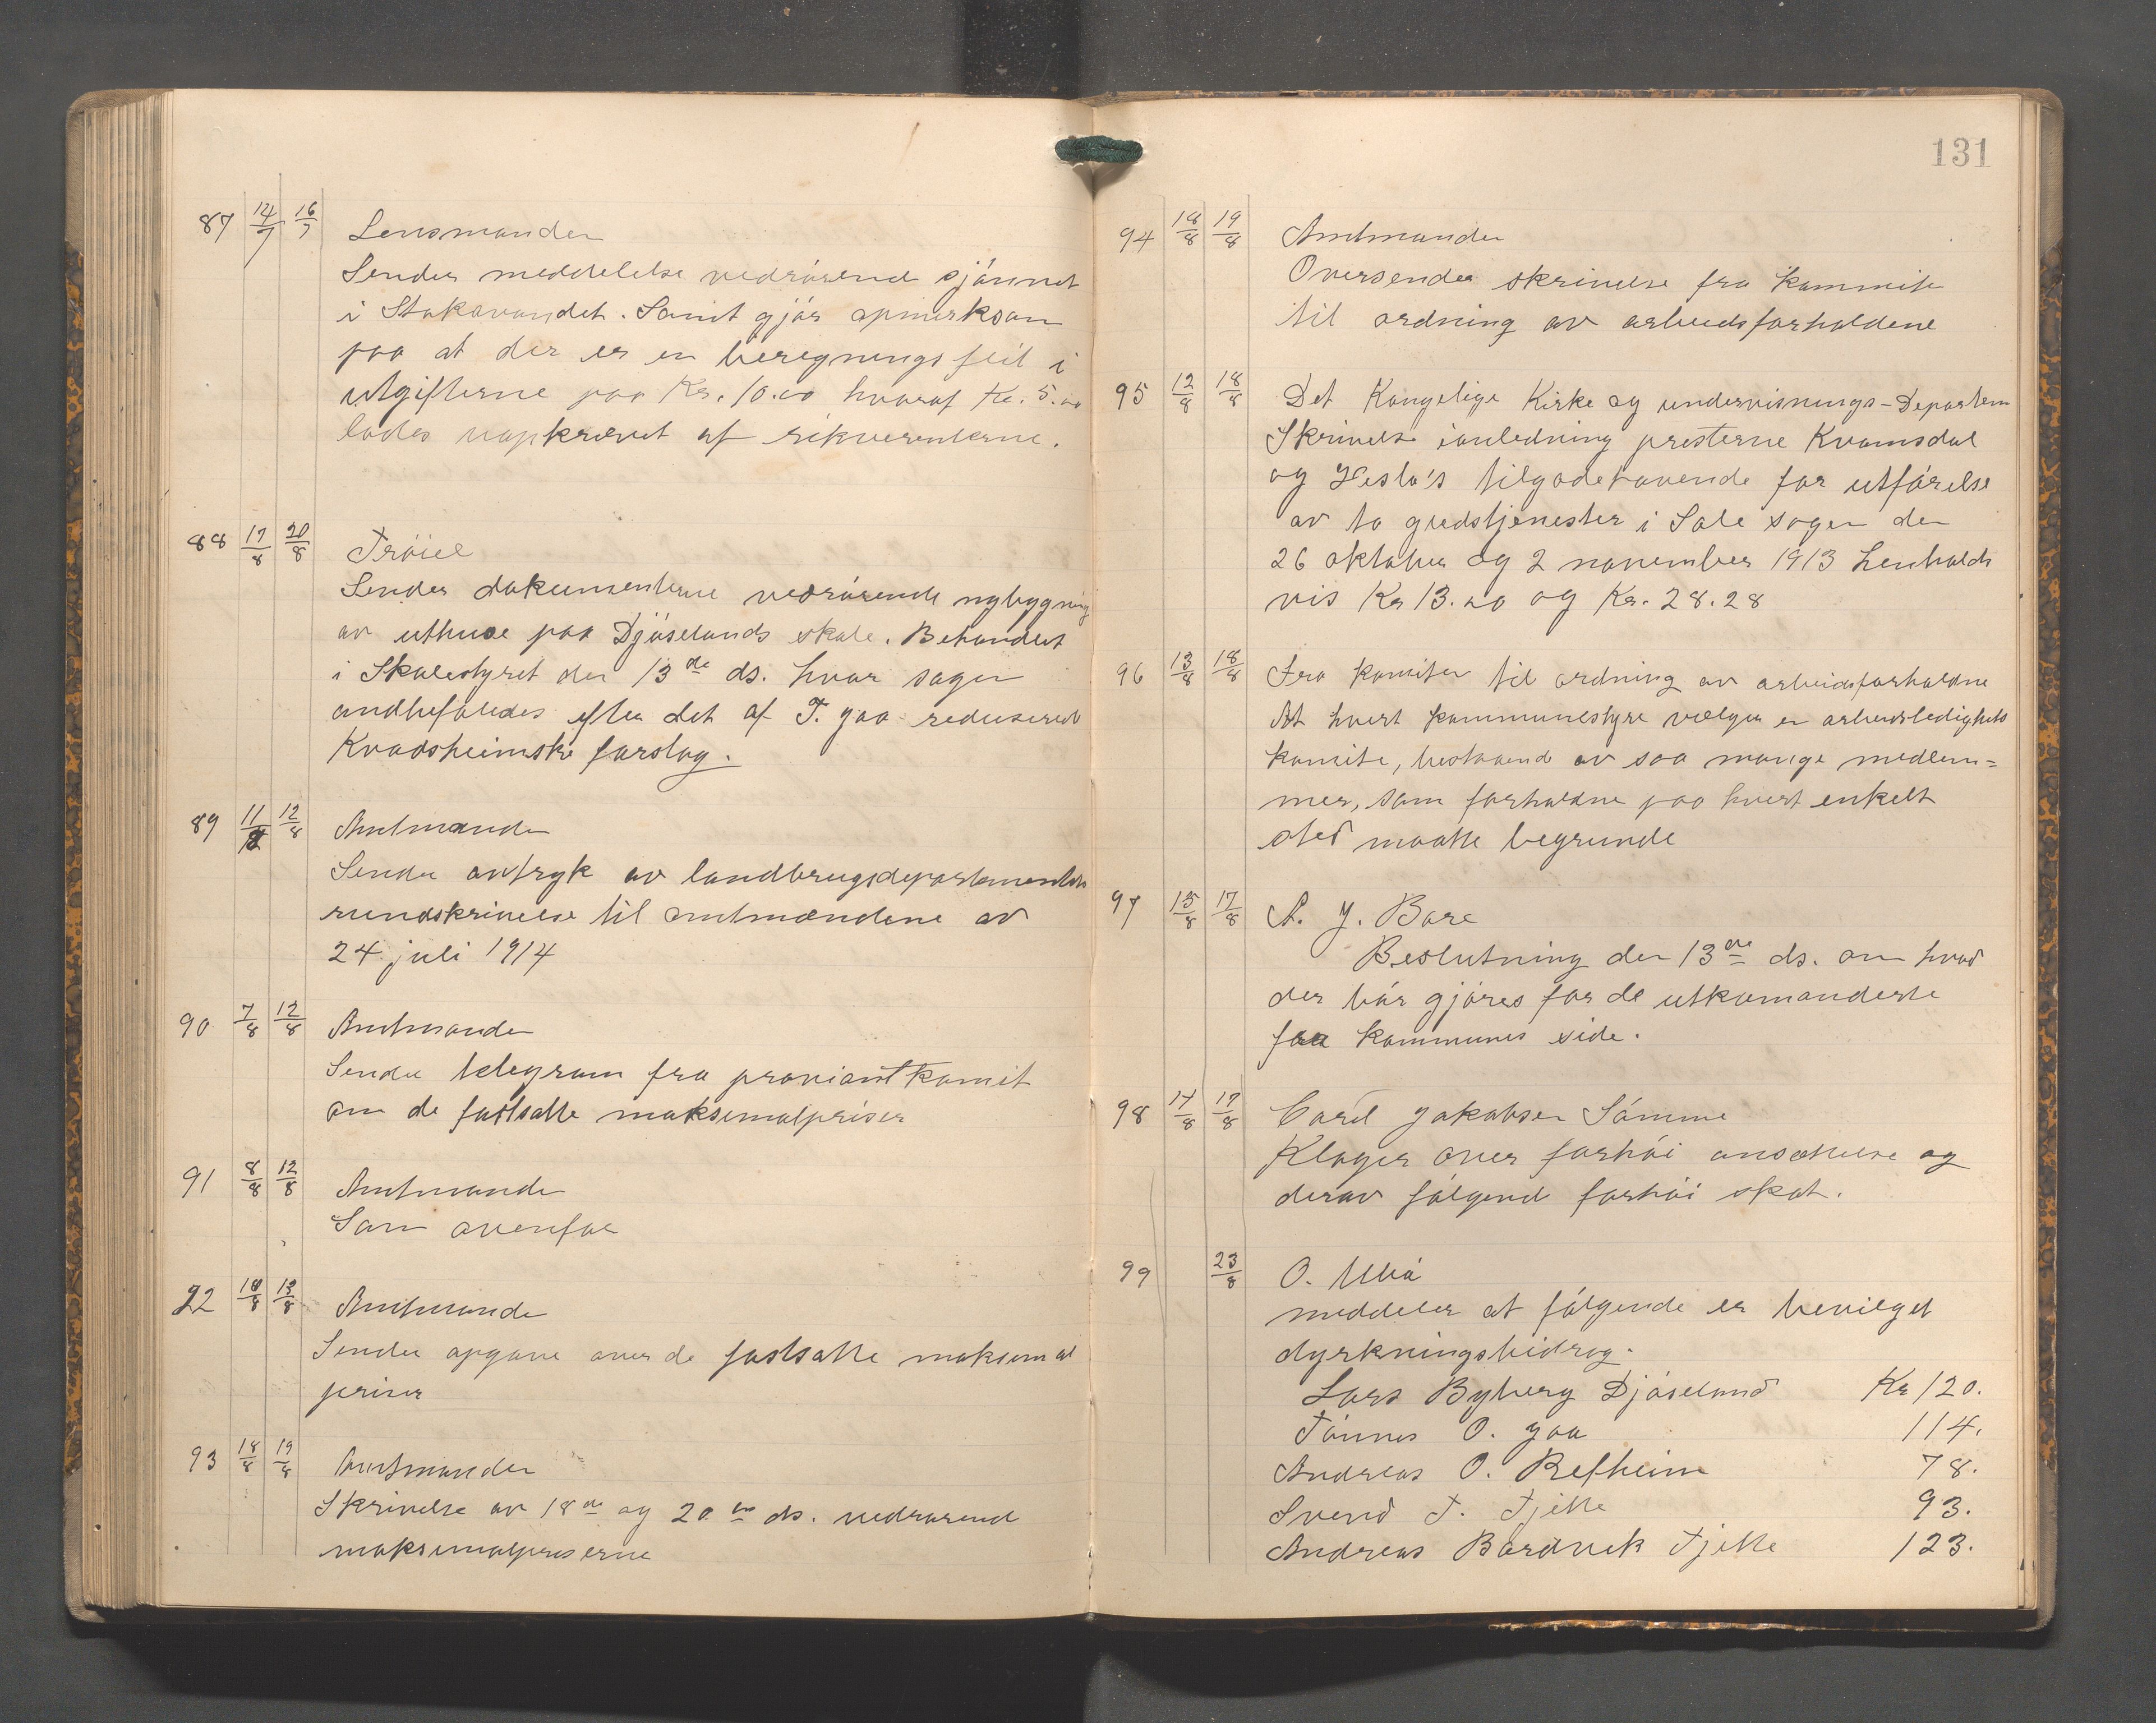 87 14/7 16/7 Lensmanden
Sender meddelelse vedrørend sjønnet
i Stokavandet. Samt gjør opmerksom
paa at der er en beregningsfeil i
utgifterne paa Kr. 10.00 hvoraf Kr. 5.00
lodes uopkrævet af rikverenterne.
88 17/8 20/8 Trøiel
Sender dokumenterne vedrørende nybygning
av uthuse paa Djøselands skole. Behandlet
i Skolestyret den 13de ds. hvor sagen
andbefaledes efter det af T. Joa reduserede
Kvadsheimske forslag.
89 11/8 12/8 Amtmanden
Sender avtryk av landbrugsdepartementets
rundskrivelse til amtmændene av
24. juli 1914
90 7/8 12/8 Amtmanden
Sender telegram fra proviantkomit
om de fastsatte maksimalpriser
91 8/8 12/8 Amtmanden
Som ovenfor
92 10/8 13/8 Amtmande
Sender opgave over de fastsatte maksimal
priser
93 18/8 19/8 Amtmanden
Skrivelse av 18de og 20de ds. vedrørend
maksimalpriserne
131
94 18/8 19/8 Amtmanden
Oversender skrivelse fra kommite
til ordning av arbeidsforholdene
95 12/8 18/8 Det Kongelige Kirke og undervisnings-Departem
Skrivelse ianledning presterne Kvamsdal
og Hesla's tilgodehavende for utførelse
av to gudstjenester i Sole sogn den
26 oktober og 2 november 1913 henholds
vis Kr 13.20 og Kr. 28.28
96 13/8 18/8 Fra komiteen til ordning av arbeidsforholdne
At hvert kommunestyre vælger en arbeidsledigheds
komite, bestaaend av saa mange medlem=
mer, som forholdne paa hvert enkelt
sted maatte begrunde
97 15/8 17/8 A. J. Bore
Beslutning den 13de ds. om hvad
der bør gjøres for de utkomanderte
fra kommunes side.
98 14/8 17/8 Carl Jakobsen Sømme
Klager over forhøi ansættelse og
derav følgend forhøi skat.
99 23/8 O. Ubø
meddeler at følgende er bevilget
dyrkningsbidrag.
Lars Byberg Djøseland Kr 120.
Tønnes O. Joa 114.
Andreas O. Refheim 78.
Svend T. Tjelte 93.
Andreas Bærdvik Tjelte 123.